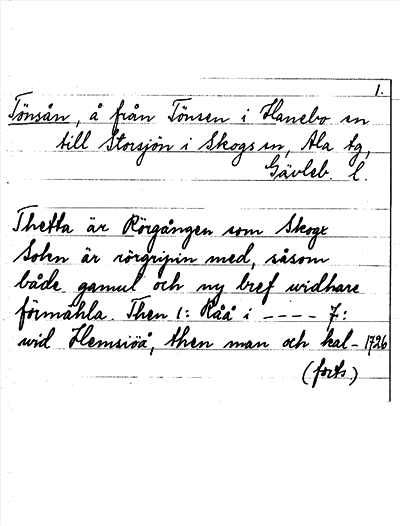 1.
Tönsån, å från Tönsen i Hanebo sn
till Storsjön i Skogs sn, Ala tg,
Gävleb. l.
Thetta är Rörgången som Skogs
Sokn är rörgripin med, såsom
både gamul och ny bref widhare
förmähla. Then 1: Råå i ---- 7:
wid Hemsiöå, then man och kal- 1726
(forts.)